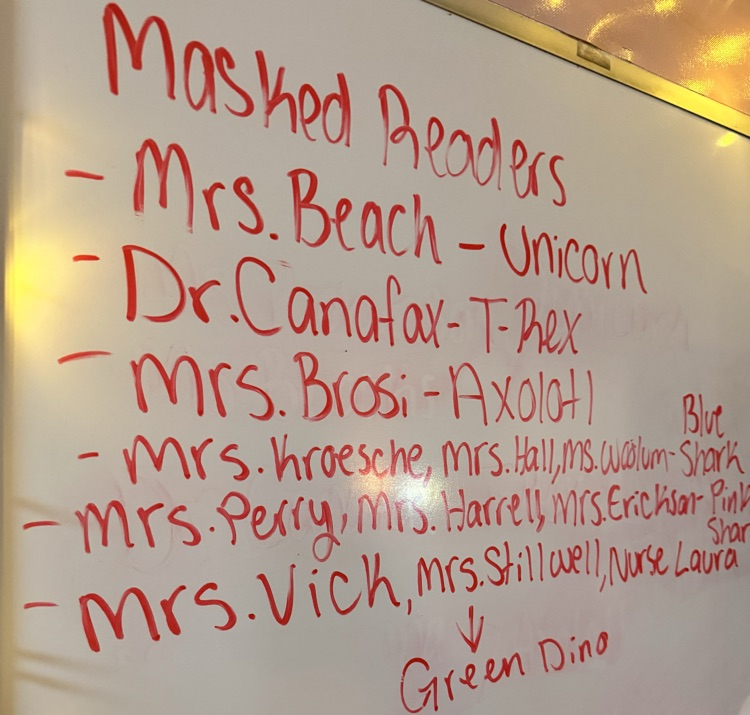 Masked Readers
- Mrs. Beach - Unicorn
- Dr. Canafax - T-Rex
- Mrs. Brosi - Axolotl
- Mrs. Kroesche, Mrs. Hall, Ms. Woolum - Blue Shark
- Mrs. Perry, Mrs. Harrell, Mrs. Erickson - Pink Shar
- Mrs. Vick, Mrs. Stillwell, Nurse Laura
↓
Green Dino